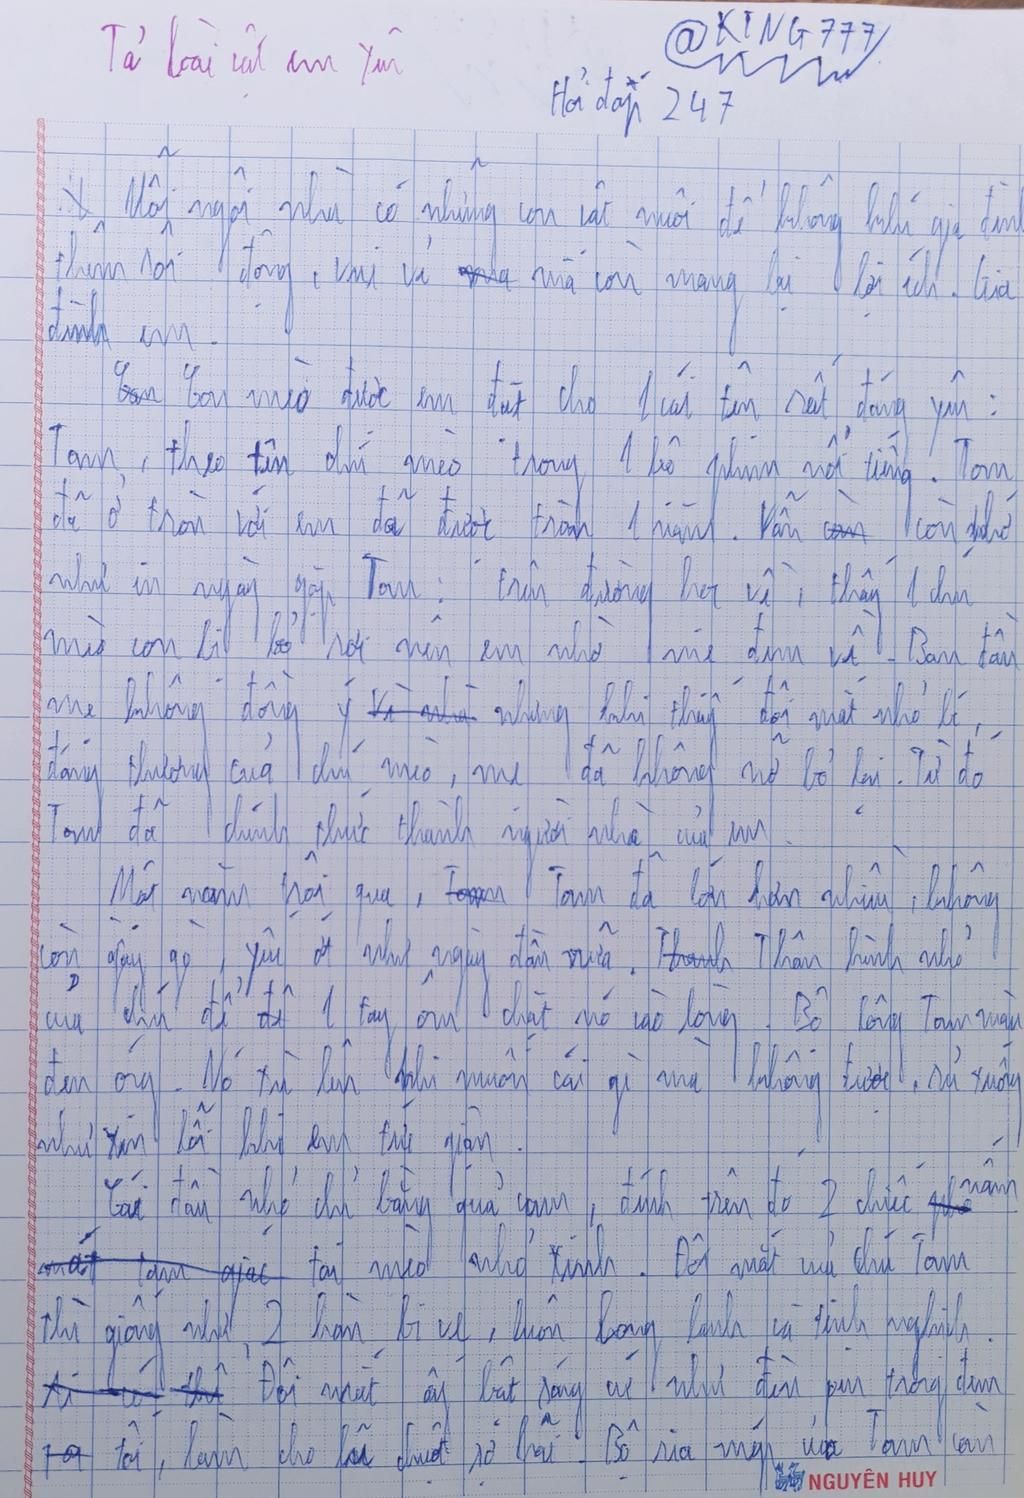 Tả loài vật em yêu
@KING777
Hỏi đáp 247
Mỗi ngôi nhà có những con vật nuôi để không khí gia đình
thêm sôi động, vui vẻ mà còn mang lại lợi ích. Gia
đình em.
Con mèo được em đặt cho 1 cái tên rất đáng yêu:
Tom, theo tên chú mèo trong 1 bộ phim nổi tiếng. Tom
đã ở với em đã được tròn 1 năm. Vẫn còn nhớ
như in ngày gặp Tom: trên đường học về, thấy 1 chú
mèo con bị bỏ rơi nên em nhờ mẹ đem về. Ban đầu
mẹ không đồng ý nhưng khi thấy đôi mắt nhỏ bé,
đáng thương của chú mèo, mẹ đã không nỡ bỏ lại. Từ đó
Tom đã chính thức thành người nhà của em.
Một năm trôi qua, Tom đã lớn hơn nhiều, không
còn gầy gò, yếu ớt như ngày đầu nữa. Thân hình nhỏ
của chú để 1 tay ôm chặt nó vào lòng. Bộ lông Tom màu
đen óng. Nó xù lên khi muốn cái gì mà không được, rũ xuống
như xin lỗi khi em tức giận.
Cái đầu nhỏ chỉ bằng quả cam, đính trên đó 2 chiếc nấm
tai mèo nhỏ xinh. Đôi mắt của chú Tom
thì giống như 2 hòn bi ve, luôn long lanh và tinh nghịch.
Đôi mắt ấy bật sáng như đèn pin trong đêm
tối, làm cho lũ chuột sợ hãi. Bộ ria mép của Tom còn
NGUYÊN HUY